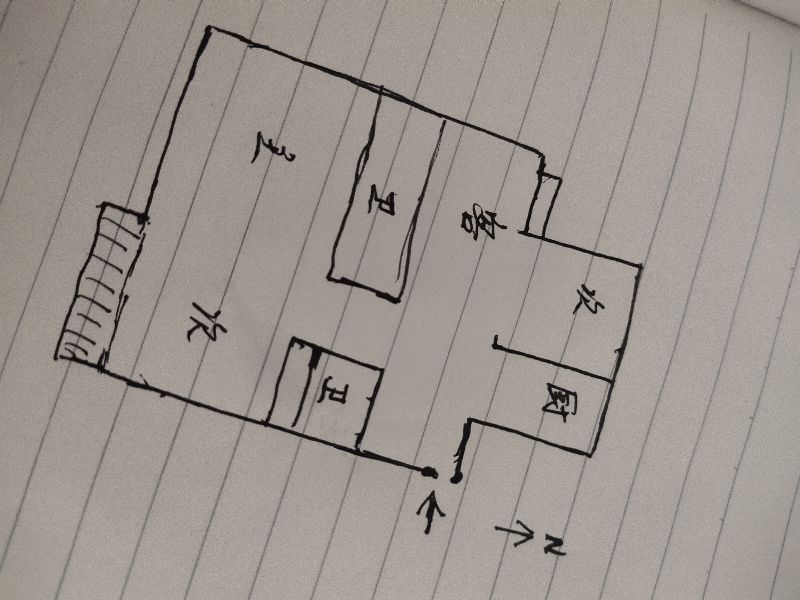 主
卫
客
次
次
卫
厨
N